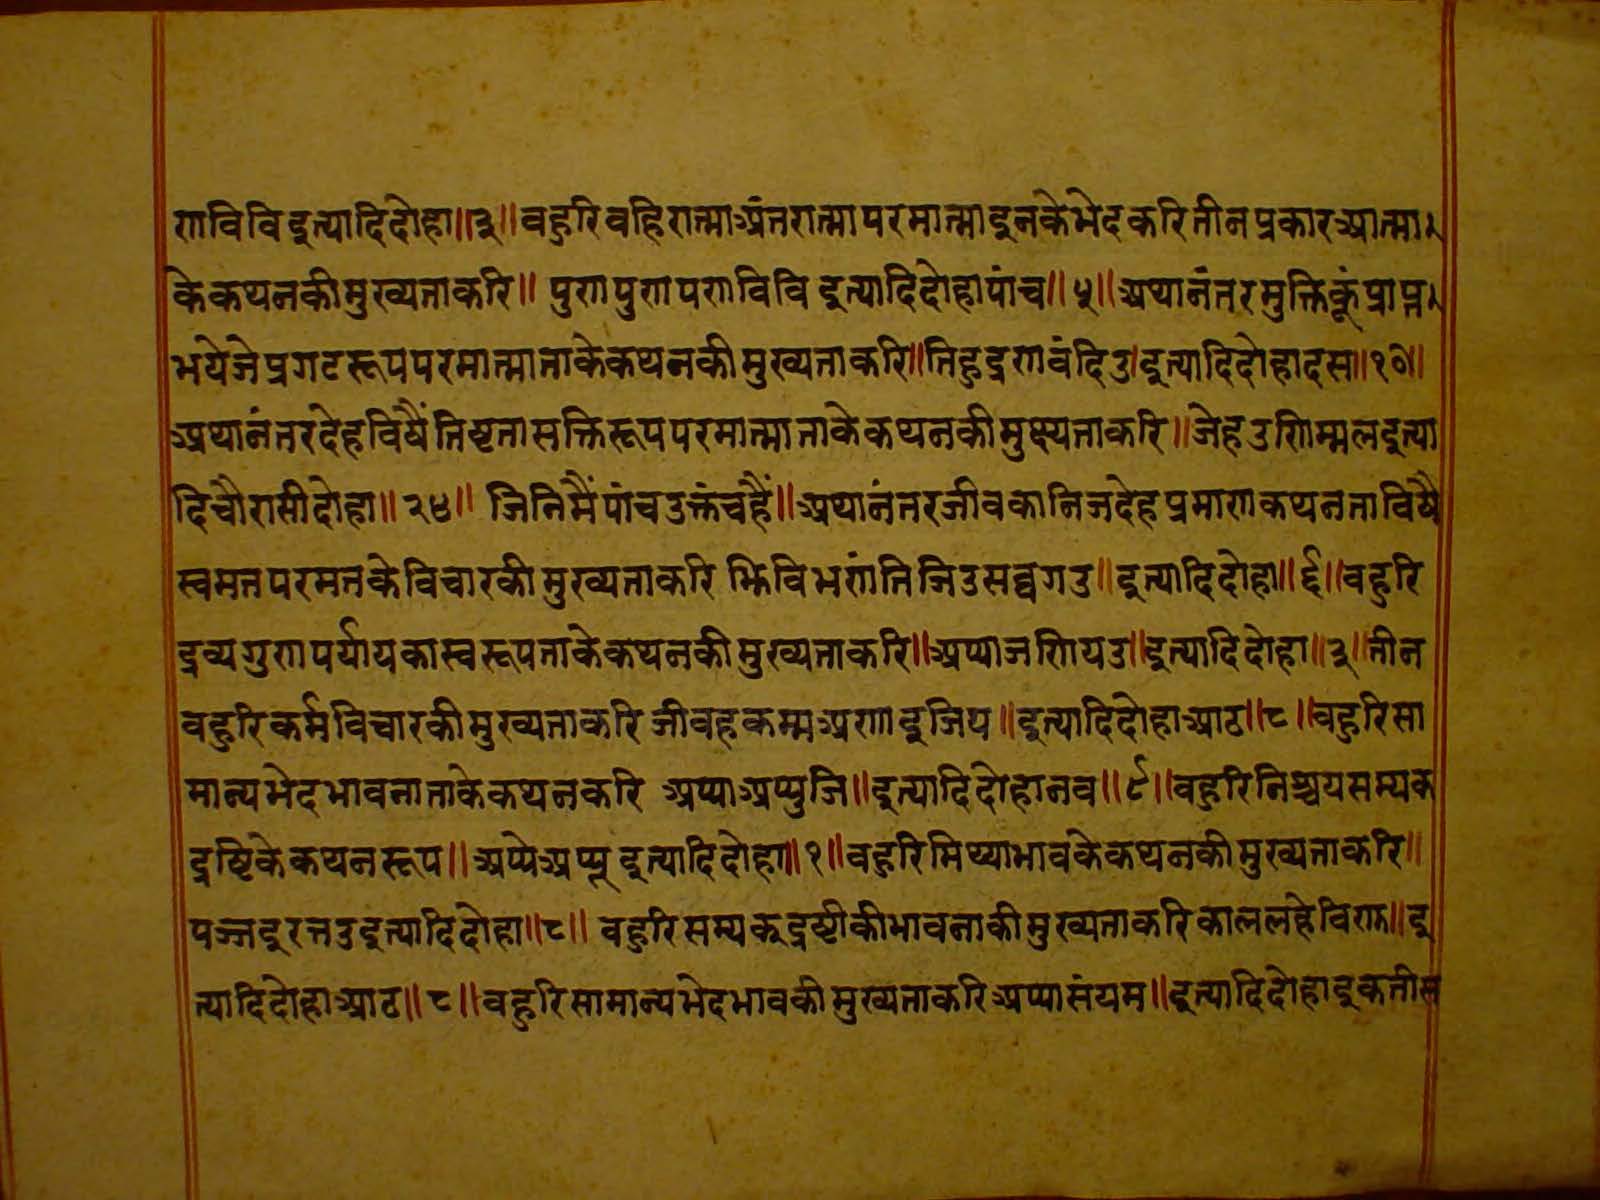 णविवि इत्यादि दोहा॥३॥ वहुरि वहिरात्मा अंतरात्मा परमात्मा इनके भेद करि तीन प्रकार आत्मा
के कथन की मुख्यता करि॥ पुण पुण पणविवि इत्यादि दोहा पांच॥५॥ अथानंतर मुक्ति कूं प्राप्त
भये जे प्रगट रूप परमात्मा ताके कथन की मुख्यता करि॥ तिहुइण वंदिउ। इत्यादि दोहा दस॥१०॥
अथानंतर देह विषैं तिष्टता सक्ति रूप परमात्मा ताके कथन की मुख्यता करि॥ जेहउ णिम्मल इत्या
दि चौरासी दोहा॥२४॥ जिनि मैं पांच उक्तं च हैं॥ अथानंतर जीव का निज देह प्रमाण कथन ता विषै
स्वमत परमत के विचार की मुख्यता करि झिवि भणंति जिउ सव्वगउ॥ इत्यादि दोहा॥६॥ वहुरि
द्रव्य गुण पर्याय का स्वरूप ताके कथन की मुख्यता करि॥ अप्पा जणियउ॥ इत्यादि दोहा॥३॥ तीन
वहुरि कर्म विचार की मुख्यता करि जीवह कम्म अणाइ जिय॥ इत्यादि दोहा आठ॥८॥ वहुरि सा
मान्य भेद भावना ताके कथन करि अप्पा अप्पुजि॥ इत्यादि दोहा नव॥९॥ वहुरि निश्चय सम्यक
द्रष्टि के कथन रूप॥ अप्पे अप्पू इत्यादि दोहा॥१॥ वहुरि मिथ्या भाव के कथन की मुख्यता करि॥
पज्जइ रत्तउ इत्यादि दोहा॥८॥ वहुरि सम्यक् द्रष्टी की भावना की मुख्यता करि काल लहेविण॥ इ
त्यादि दोहा आठ॥८॥ वहुरि सामान्य भेद भाव की मुख्यता करि अप्पा संयम॥ इत्यादि दोहा इकतीस